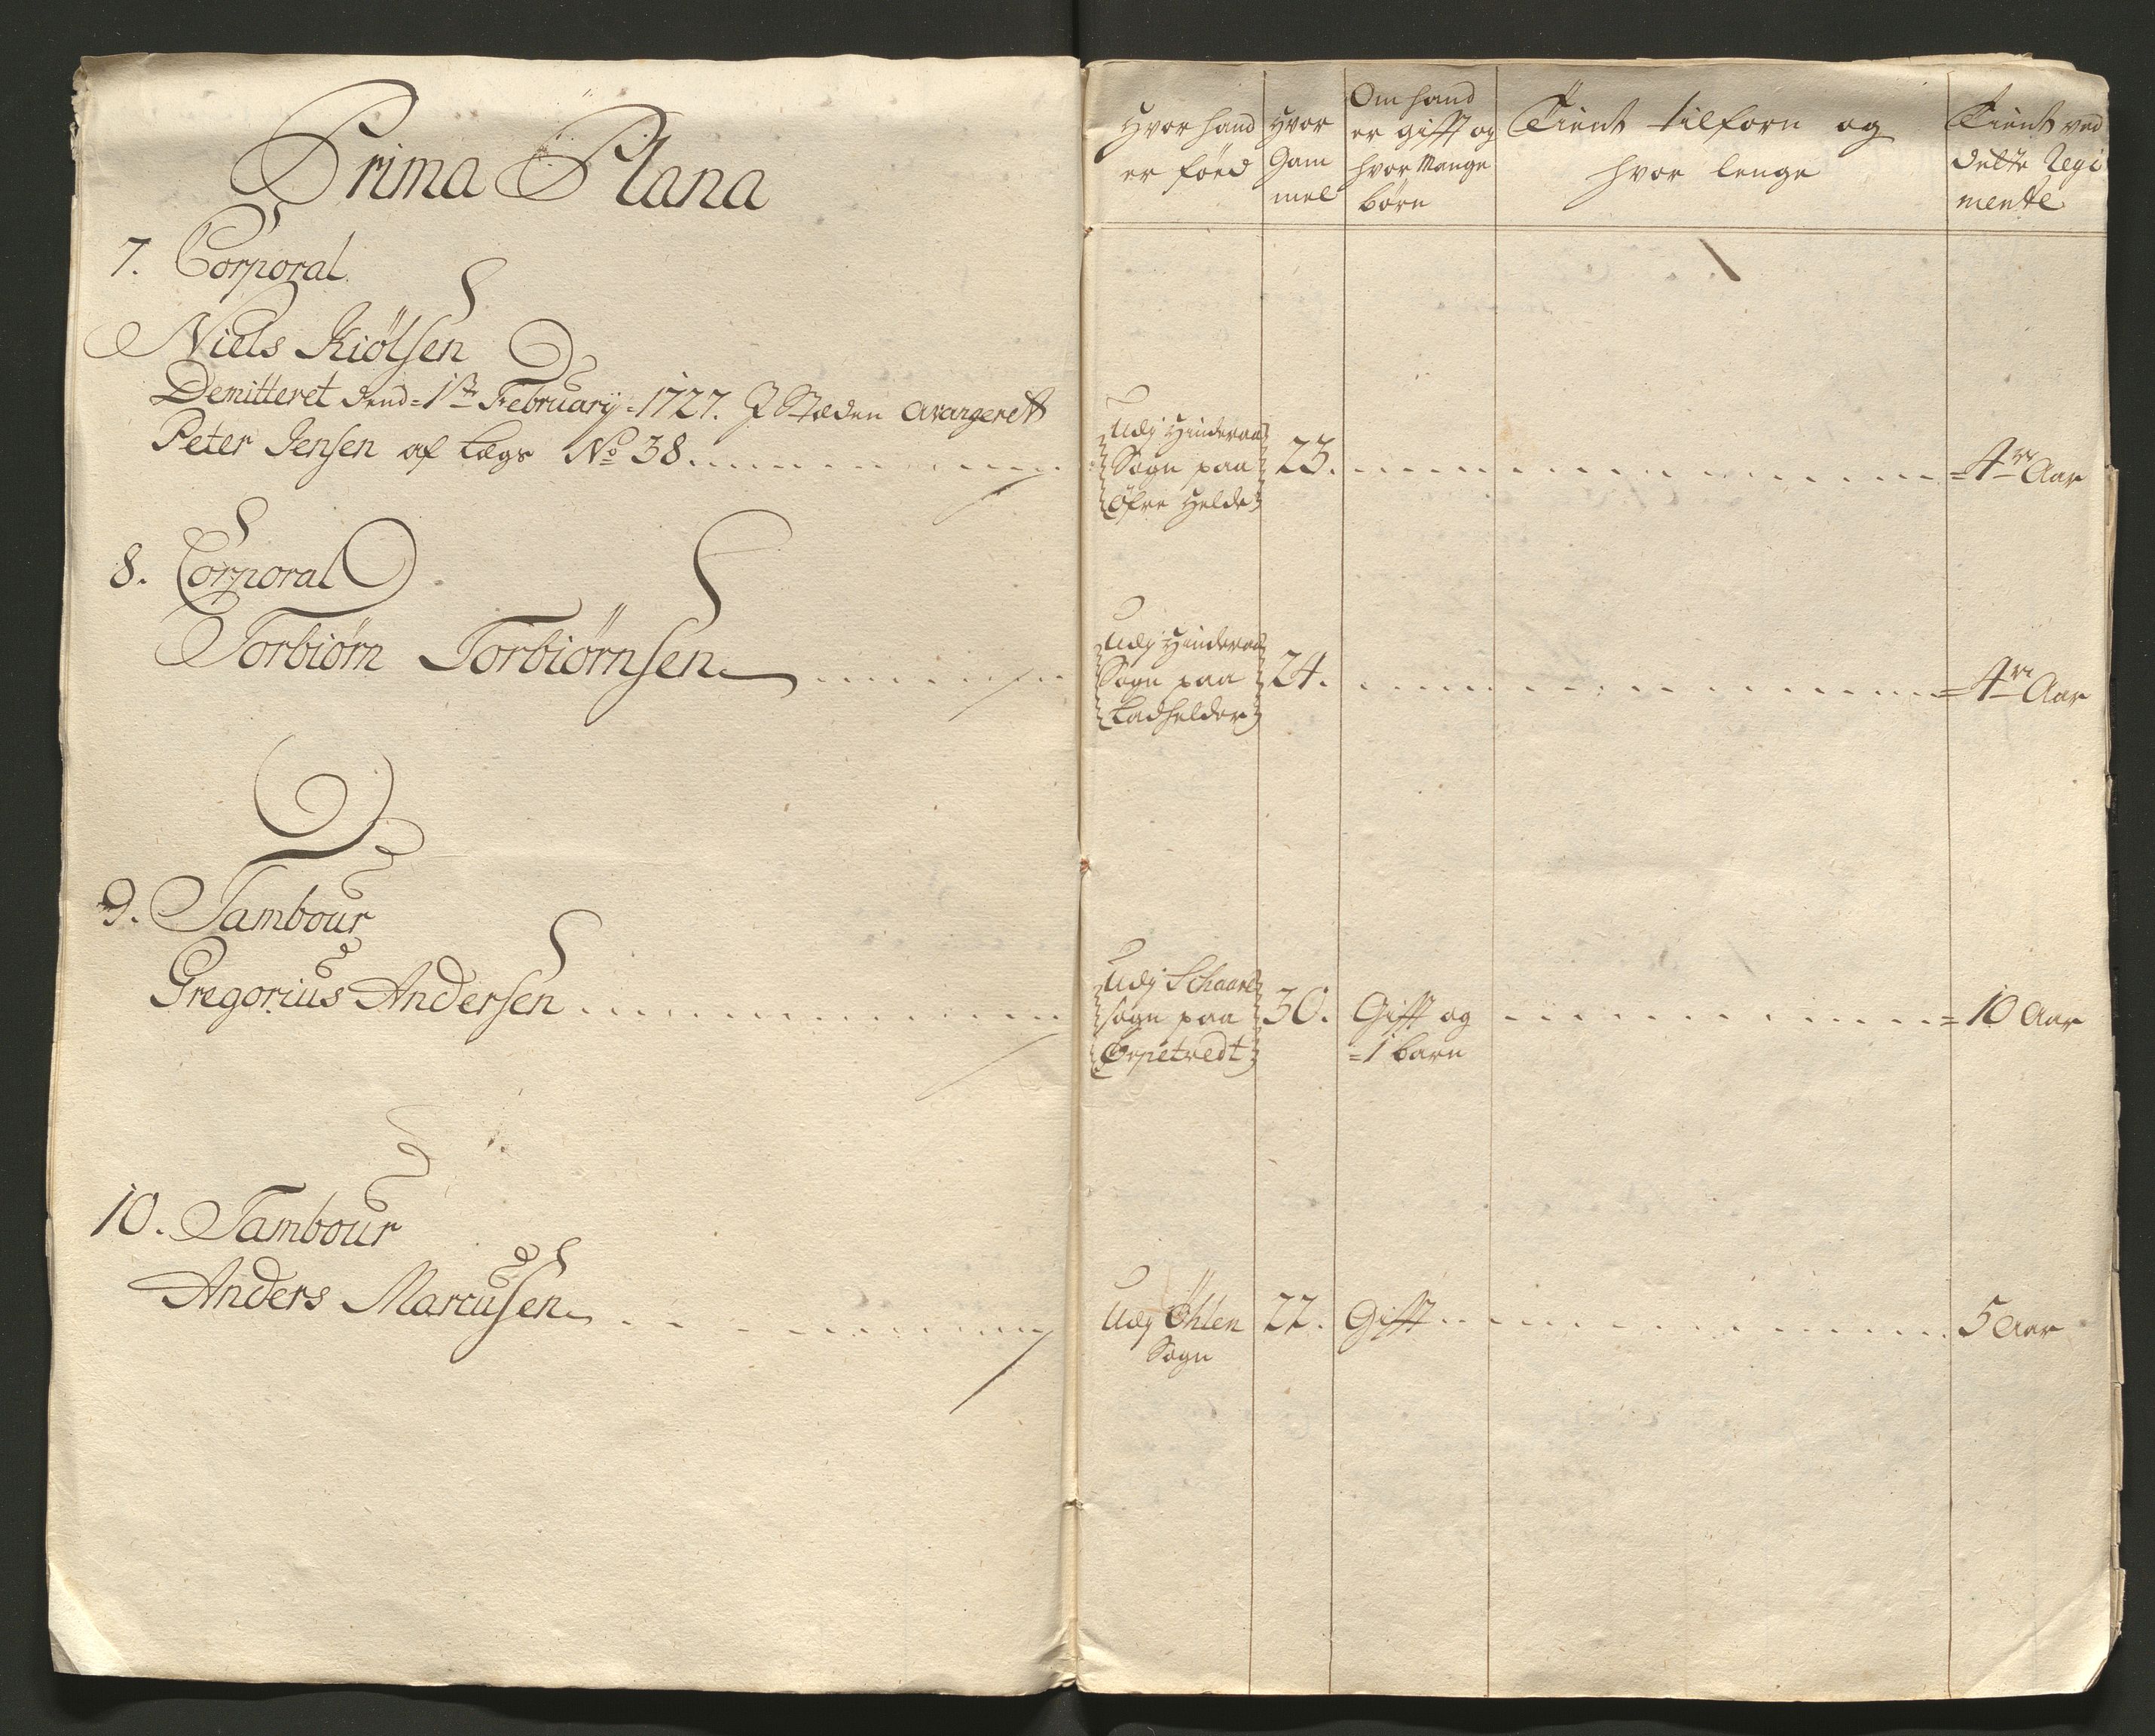 Prima Plana
7. Corporal
Niels Kiölsen
Demitteret dend =1ste February =1727. I Stæden avangeret
Peter Jensen af Legs No 38.
8. Corporal
Torbiörn Torbiörnsen
9. Tambour
Gregorius Andersen
10. Tambour
Anders Marcussen
Hvor hand
er föed
Hvor
Gam
mel
Om hand
er gifft og
hvor Mange
börn
Tient tilforn og
hvor lenge
Tient ved
dette Regi
mente
Udj Hinderaa
Sogn paa
Öfre Helde
23.
=4re Aar
Udj Hinderaa
Sogn paa
Ladhelder
24.
=4re Aar
Udj Schaare
sogn paa
30.
Gifft og
=1 barn
=10 Aar
Udj Öhlen
Sogn
22.
Gifft
5 Aar